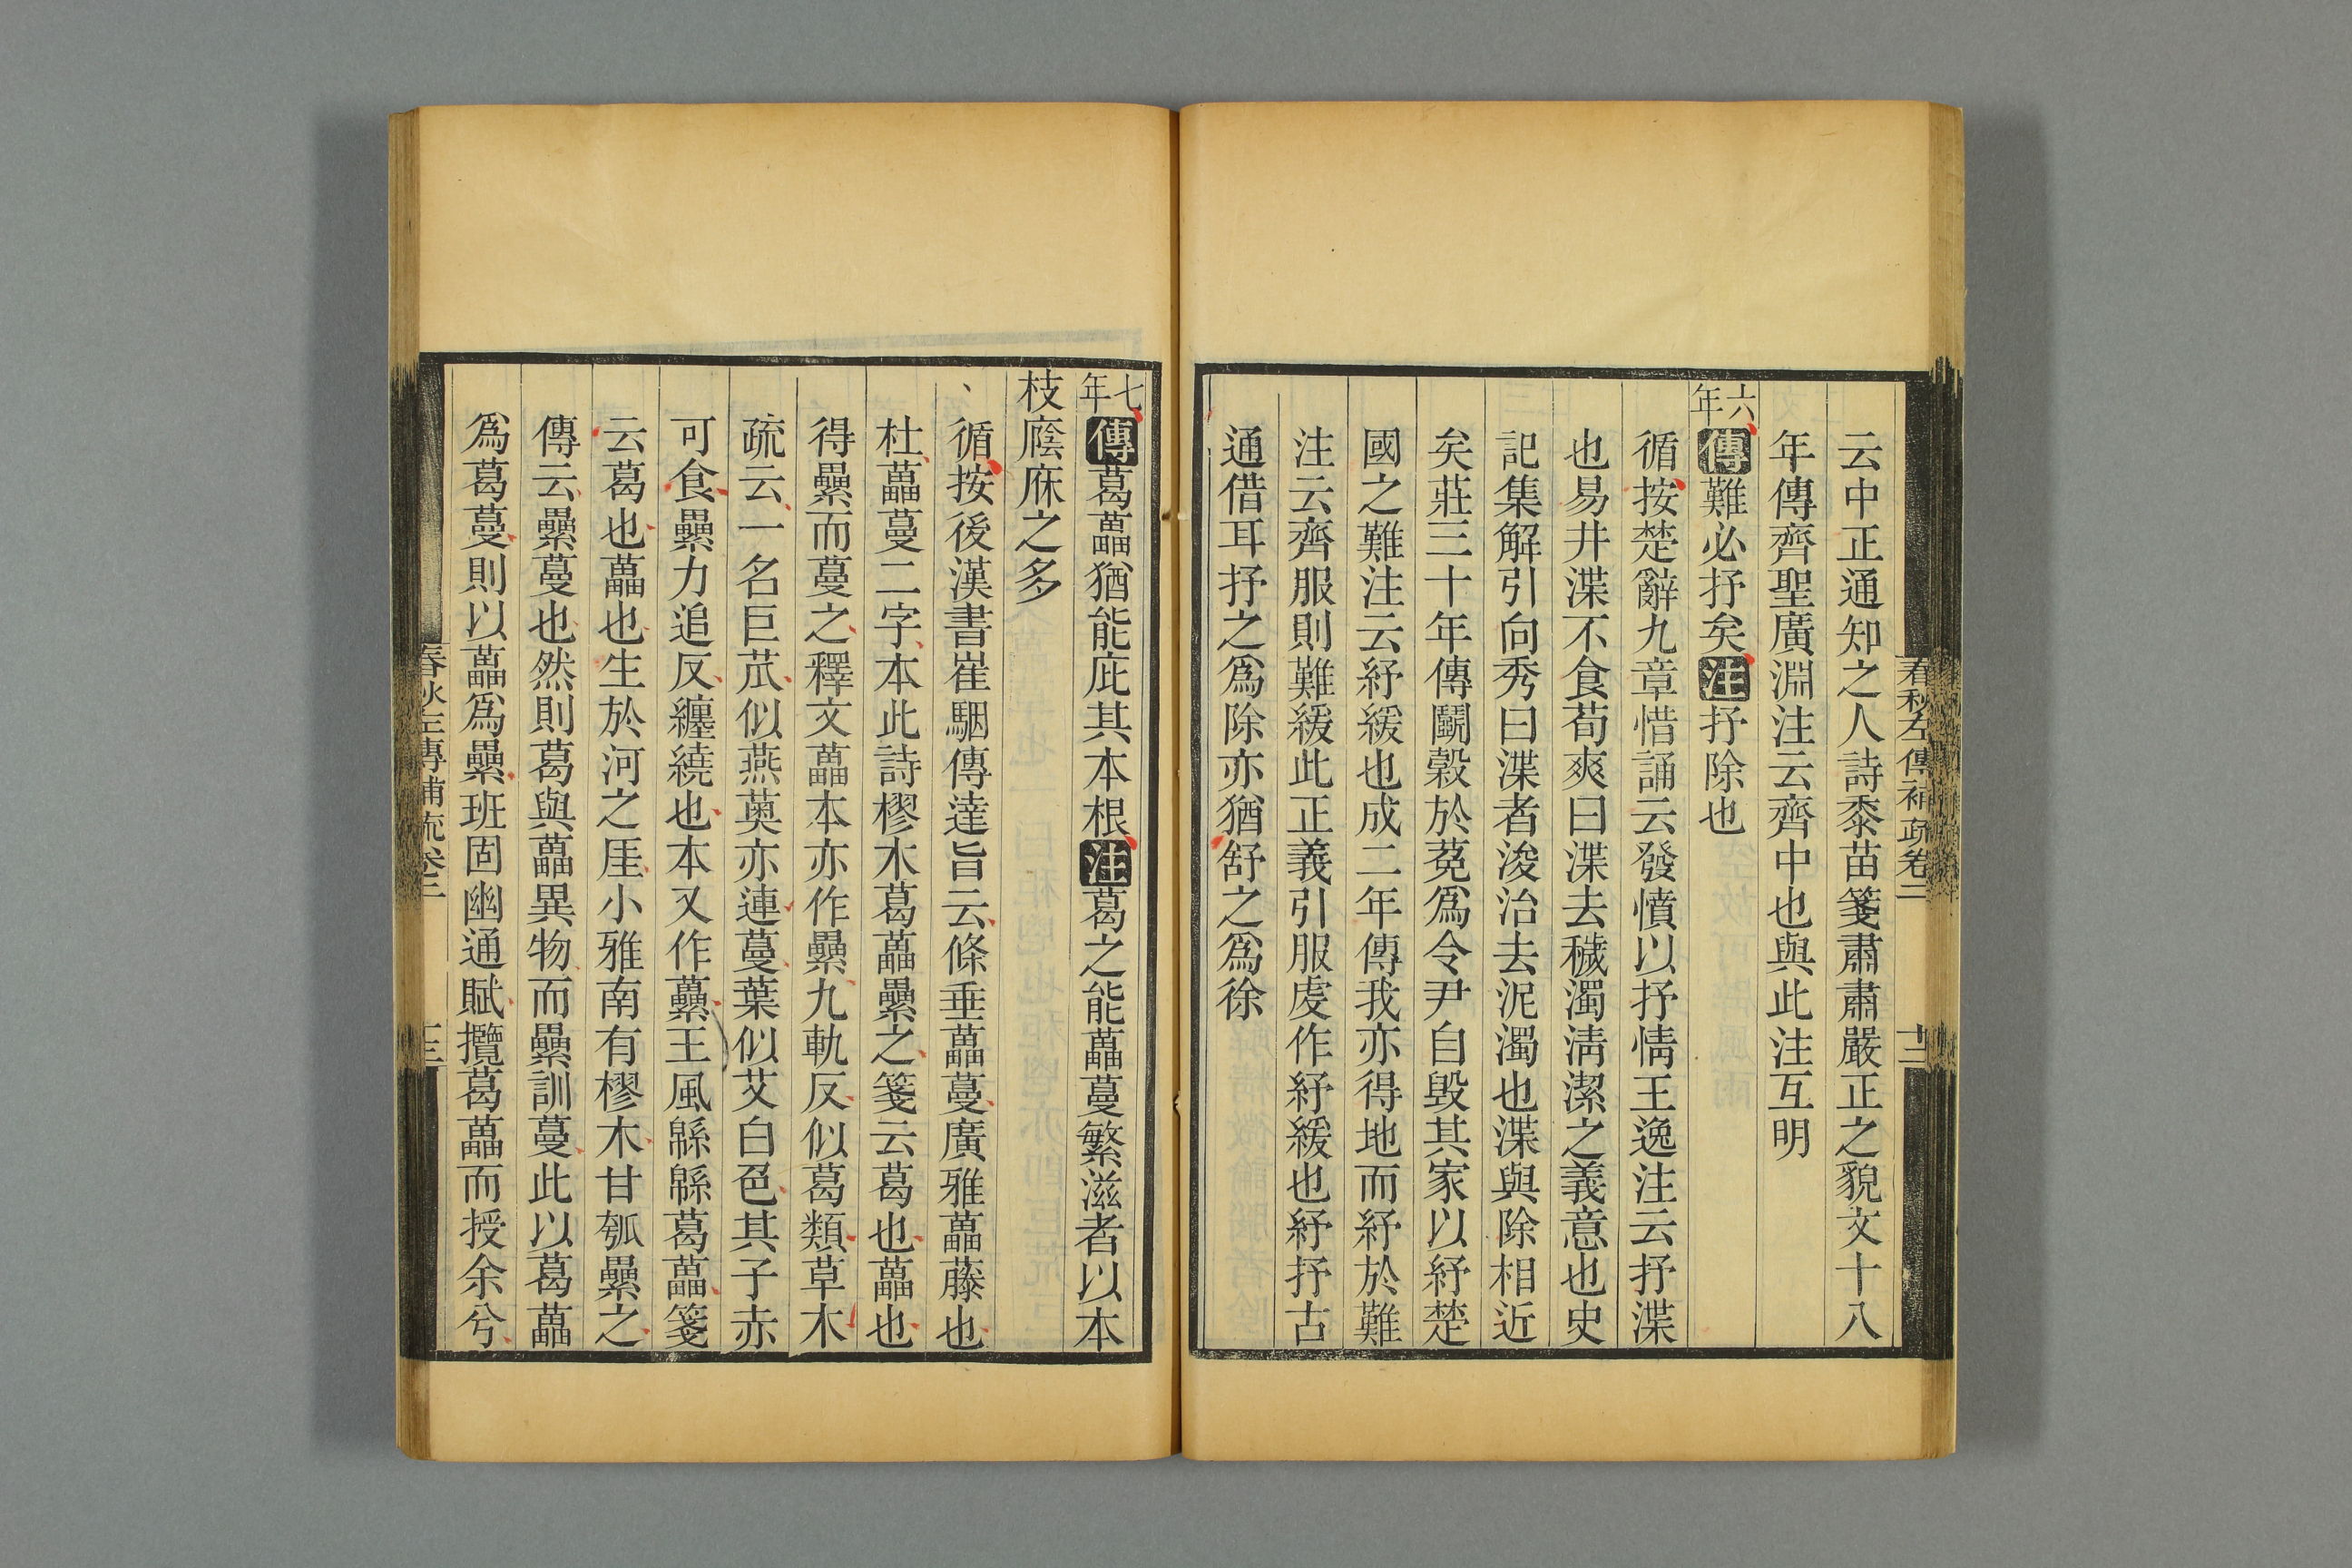 春秋左傳補疏卷二
十二
云中正通知之人詩黍苗箋肅肅嚴正之貌文十八
年傳齊聖廣淵注云齊中也與此注互明
六年傳難必抒矣注抒除也
循按楚辭九章惜誦云發憤以抒情王逸注云抒渫
也易井渫不食荀爽曰渫去穢濁淸潔之義意也史
記集解引向秀曰渫者浚治去泥濁也渫與除相近
矣莊三十年傳鬭穀於菟爲令尹自毀其家以紓楚
國之難注云紓緩也成二年傳我亦得地而紓於難
注云齊服則難緩此正義引服虔作紓緩也紓抒古
通借耳抒之爲除亦猶舒之爲徐
七年傳葛藟猶能庇其本根注葛之能藟蔓繁滋者以本
枝廕庥之多
循按後漢書崔駰傳達旨云條垂藟蔓廣雅藟藤也
杜藟蔓二字本此詩樛木葛藟纍之箋云葛也藟也
得纍而蔓之釋文藟本亦作纍九軌反似葛類草木
疏云一名巨苽似燕薁亦連蔓葉似艾白色其子赤
可食纍力追反纏繞也本又作虆王風緜緜葛藟箋
云葛也藟也生於河之厓小雅南有樛木甘瓠纍之
傳云纍蔓也然則葛與藟異物而纍訓蔓此以葛藟
爲葛蔓則以藟爲纍班固幽通賦攬葛藟而授余兮
春秋左傳補疏卷二
十三